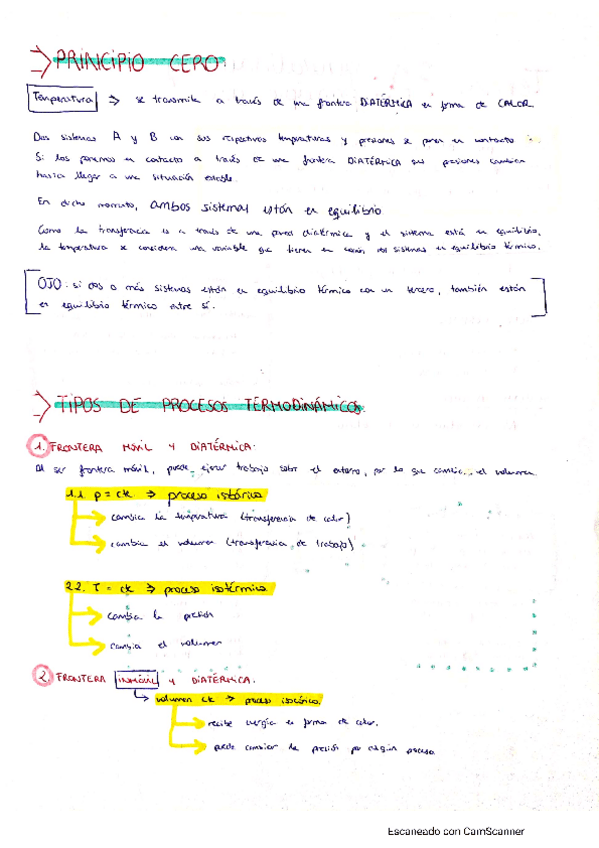 PRINCIPIO CERO
Temperatura => se transmite a través de una frontera DIATÉRMICA en forma de CALOR
Dos sistemas A y B con sus respectivos temperaturas y presiones se ponen en contacto
Si los ponemos en contacto a través de una frontera DIATÉRMICA sus presiones cambian
hasta llegar a una situación estable.
En dicho momento, ambos sistemas están en equilibrio
Como la transferencia es a través de una pared diatérmica y el sistema está en equilibrio,
la temperatura se considera una variable que tienen en común dos sistemas en equilibrio térmico.
OJO: si dos o más sistemas están en equilibrio térmico con un tercero, también están
en equilibrio térmico entre sí.
TIPOS DE PROCESOS TERMODINÁMICOS
1. FRONTERA MÓVIL Y DIATÉRMICA.
Al ser frontera móvil, puede ejercer trabajo sobre el entorno, por lo que cambia el volumen
1.1. p = ck => proceso isobárico
cambia la temperatura (transferencia de calor)
cambia el volumen (transferencia de trabajo)
2.2. T = ck => proceso isotérmico
cambia la presión
cambia el volumen
2. FRONTERA INMÓVIL Y DIATÉRMICA.
volumen ck => proceso isocórico.
recibe energía en forma de calor.
puede cambiar la presión por algún proceso.
Escaneado con CamScanner